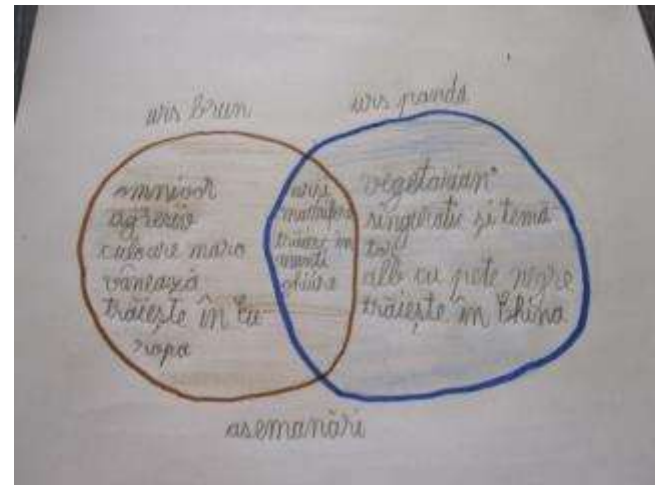 urs brun
urs panda
omnivor
agresiv
culoare maro
vânează
trăiește în Eu
ropa
urs
mamifere
trăiesc în
munți
ghiare
vegetarian
singuratic și temă
tor
alb cu pete negre
trăiește în China
asemănări